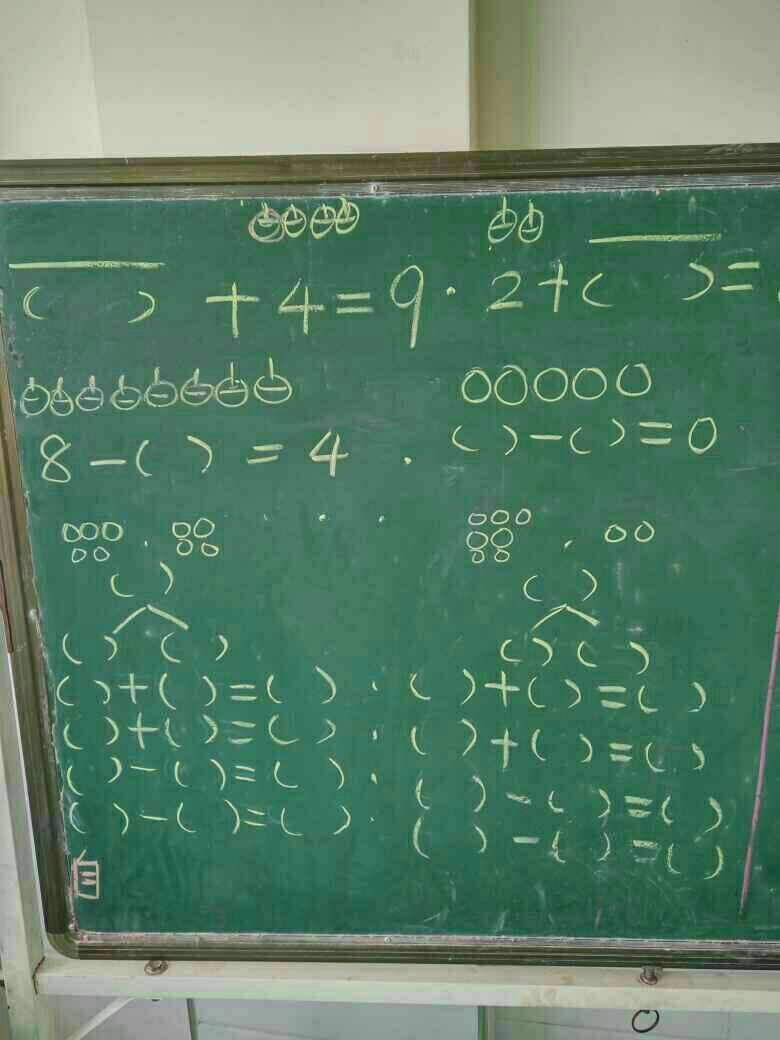 ( ) + 4 = 9 . 2 + ( ) =
8 - ( ) = 4 . ( ) - ( ) = 0
( ) ( )
( ) ( ) ( ) ( )
( ) + ( ) = ( ) . ( ) + ( ) = ( )
( ) + ( ) = ( ) . ( ) + ( ) = ( )
( ) - ( ) = ( ) . ( ) - ( ) = ( )
( ) - ( ) = ( ) . ( ) - ( ) = ( )